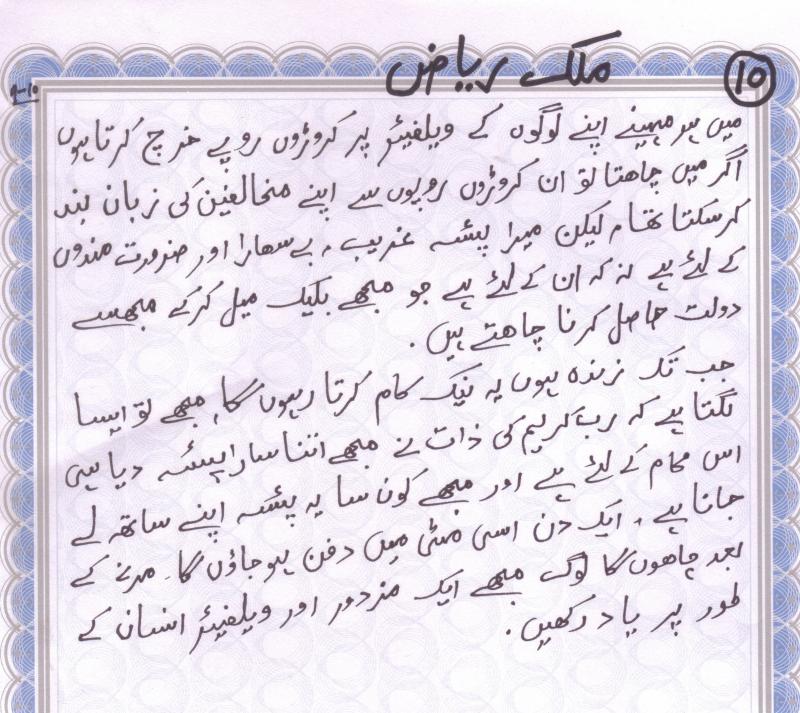 ملک ریاض
۱۰
۹-۱۰
میں ہر مہینے اپنے لوگوں کے ویلفیئر پر کروڑوں روپے خرچ کرتا ہوں
اگر میں چاھتا تو ان کروڑوں روپوں سے اپنے مخالفین کی زبان بند
کر سکتا تھا، لیکن میرا پیسہ غریب، بے سھارا اور ضرورت مندوں
کے لئے ہے نہ کہ ان کے لئے ہے جو مجھے بلیک میل کر کے مجھ سے
دولت حاصل کرنا چاھتے ہیں۔
جب تک زندہ ہوں یہ نیک کام کرتا رہوں گا، مجھے تو ایسا
لگتا ہے کہ رب کریم کی ذات نے مجھے اتنا سارا پیسہ دیا ہی
اس کام کے لئے ہے اور مجھے کون سا یہ پیسہ اپنے ساتھ لے
جانا ہے، ایک دن اسی مٹی میں دفن ہو جاؤں گا۔ مرنے کے
بعد چاھوں گا لوگ مجھے ایک مزدور اور ویلفیئر انسان کے
طور پر یاد رکھیں۔